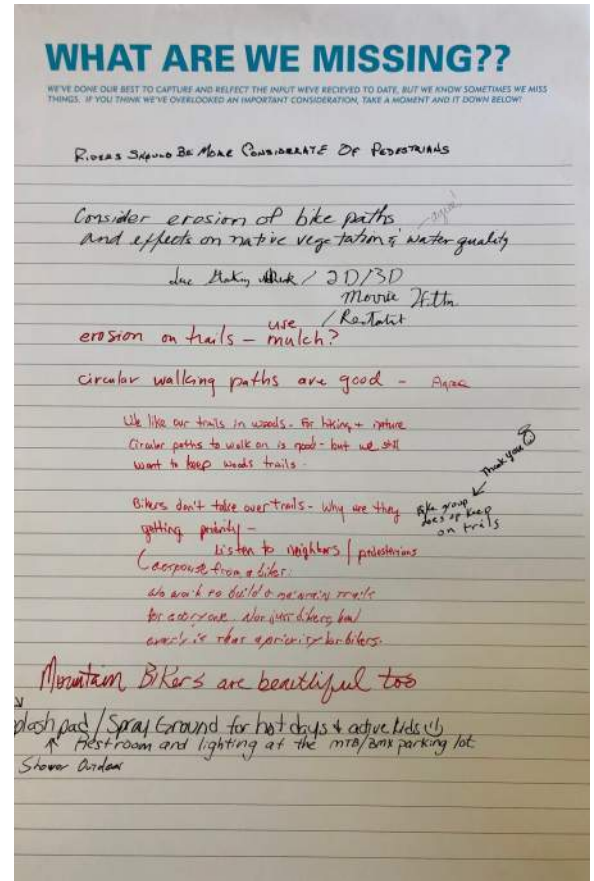 WHAT ARE WE MISSING??
WE'VE DONE OUR BEST TO CAPTURE AND RELFECT THE INPUT WEVE RECIEVED TO DATE, BUT WE KNOW SOMETIMES WE MISS
THINGS. IF YOU THINK WE'VE OVERLOOKED AN IMPORTANT CONSIDERATION, TAKE A MOMENT AND IT DOWN BELOW!
RIDERS SHOULD BE MORE CONSIDERATE OF PEDESTRIANS
Consider erosion of bike paths
agree!
and effects on native vegetation & water quality
/ 2D/3D
Movie
/
erosion on trails - use mulch?
circular walking paths are good - Agree
We like our trails in woods - For hiking + nature
Circular paths to walk on is good - but we still
want to keep woods trails.
Thank you
Bikers don't take over trails - Why are they
getting priority -
Bike group
does up keep
on trails
Listen to neighbors / pedestrians
response from a biker:
We work to build & maintain trails
for everyone. Not just bikers, but
is that a priority for bikers.
Mountain Bikers are beautiful too
plash pad / Spray Ground for hot days & active kids
Restroom and lighting at the MTB/BMX parking lot
Shower Outdoor